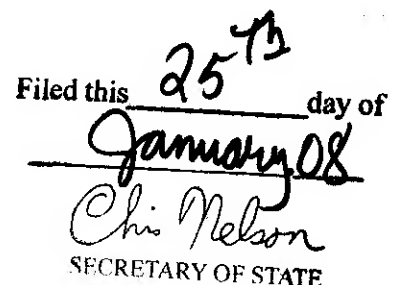 Filed this 25th day of
January 08
Chis Nelson
SECRETARY OF STATE